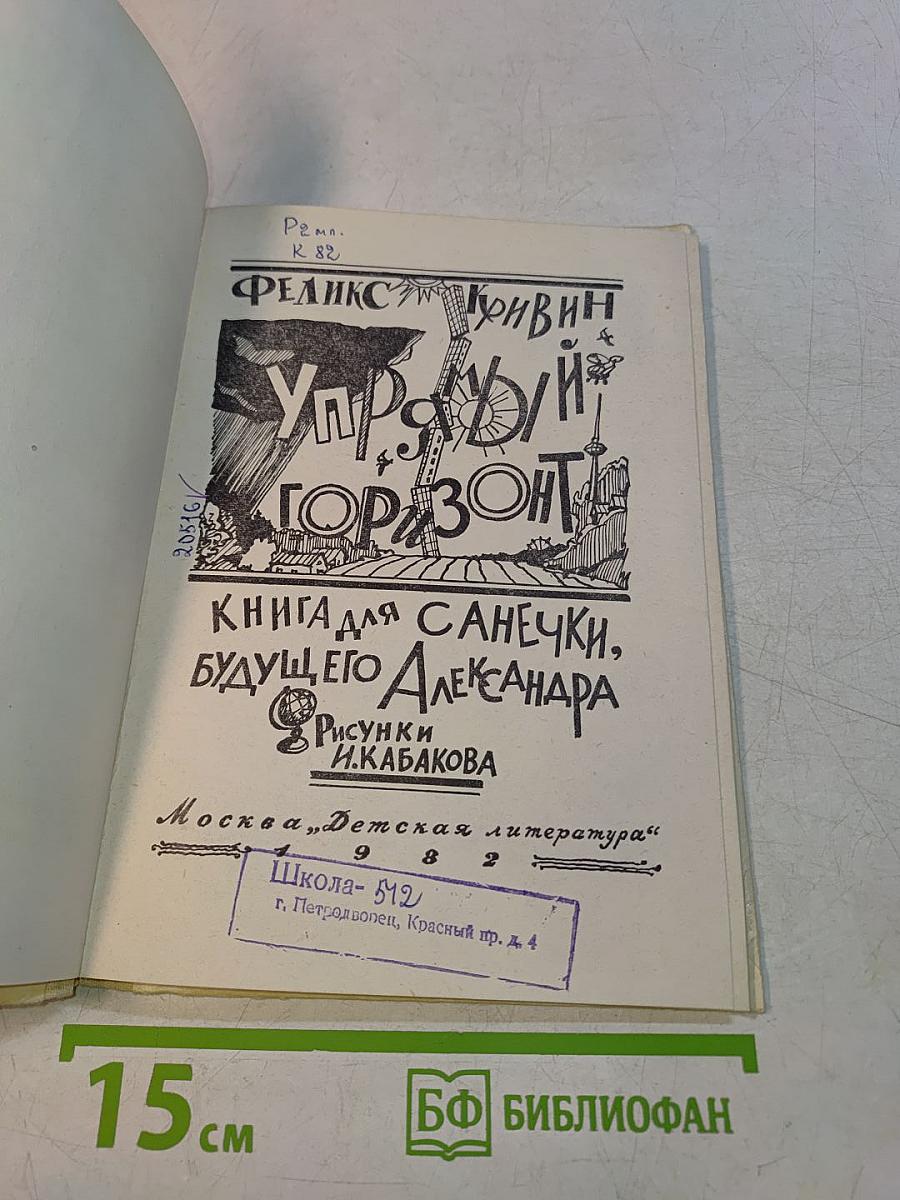 Р2 мл.
К 82
ФЕЛИКС КРИВИН
УПРЯМЫЙ
ГОРИЗОНТ
20516
КНИГА ДЛЯ САНЕЧКИ,
БУДУЩЕГО АЛЕКСАНДРА
РИСУНКИ
И. КАБАКОВА
Москва „Детская литература“
1 9 8 2
Школа- 512
г. Петродворец, Красный пр. д. 4
15 см
БФ БИБЛИОФАН